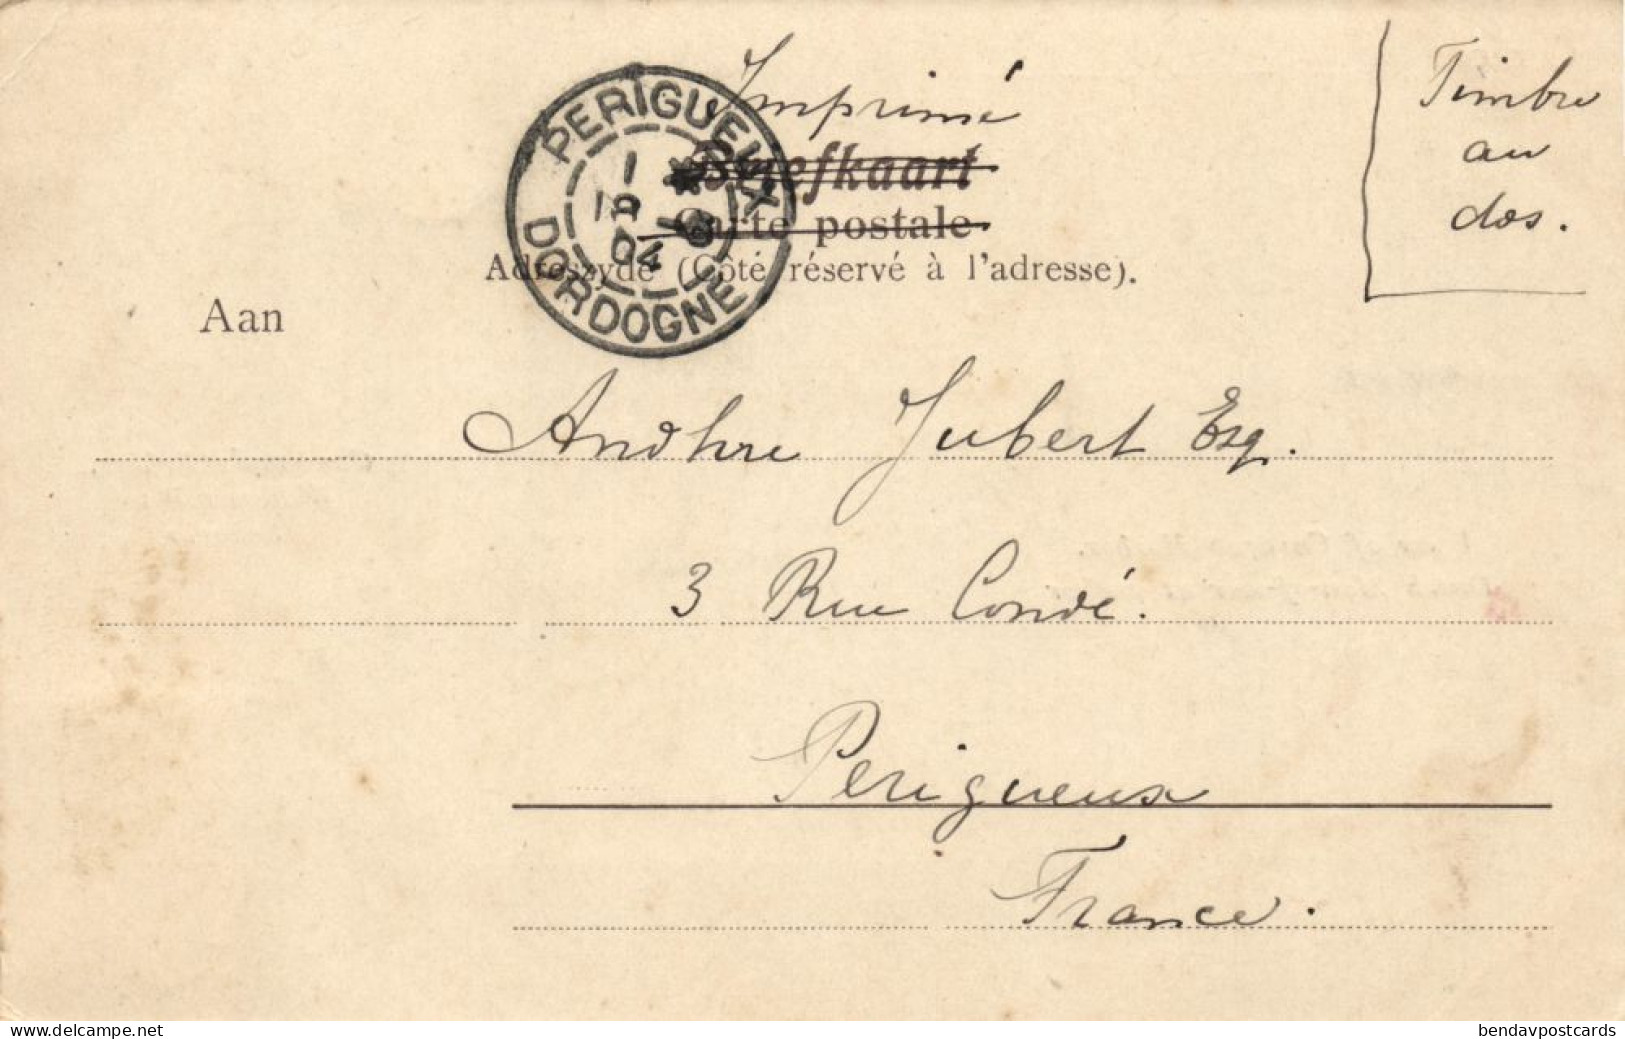 Imprimé
Timbre
au
dos.
Briefkaart
Carte postale
Adreszyde (Côté réservé à l'adresse).
PERIGUEUX
DORDOGNE
04
Aan
Andhre Jubert Esq.
3 Rue Condé.
Perigueux
France.
www.delcampe.net
bendavpostcards